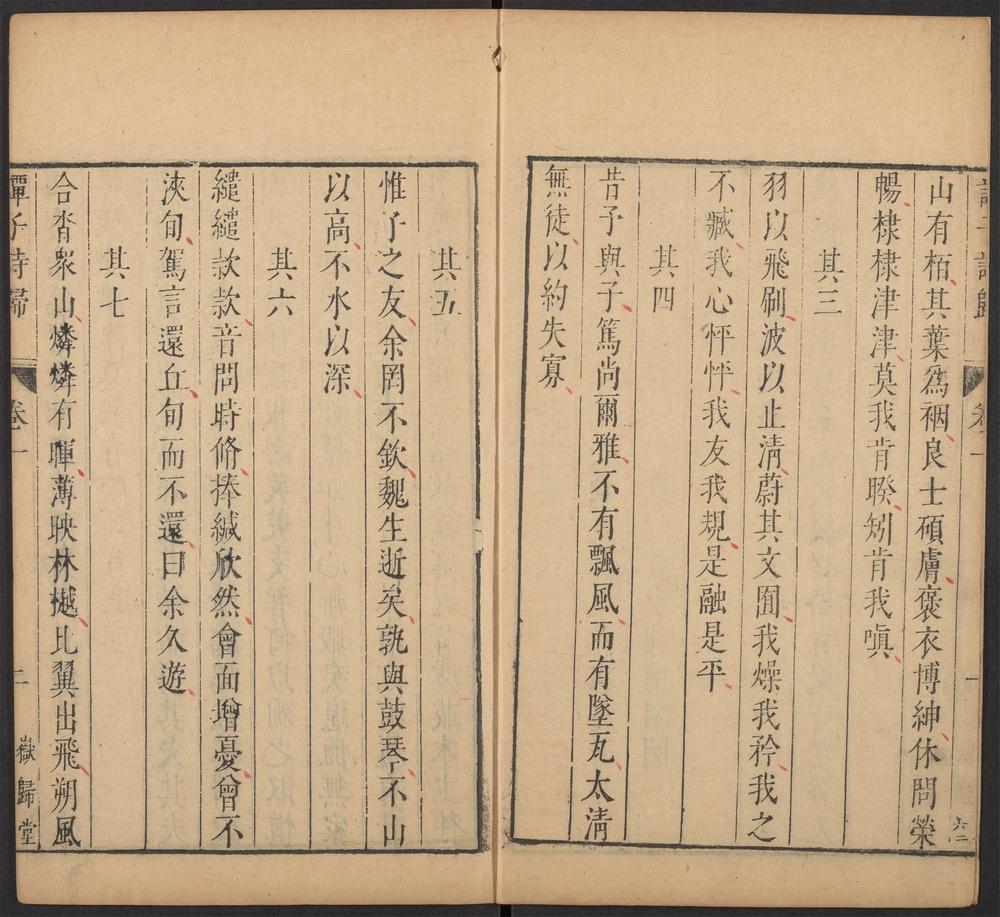 山有栢其葉爲裀良士碩膚褒衣博紳休問榮
暢棣棣津津莫我肯睽矧肯我嗔
其三
羽以飛刷波以止淸蔚其文囿我燥我矜我之
不臧我心怦怦我友我規是融是平
其四
昔予與子篤尚爾雅不有飄風而有墜瓦太淸
無徒以約失寡
其五
惟予之友余罔不欽魏生逝矣孰與鼓琴不山
以高不水以深
其六
繾繾款款音問時脩捧緘欣然會面增憂曾不
浹旬駕言還丘旬而不還曰余久遊
其七
合沓衆山燐燐有暉薄映林樾比翼出飛朔風
譚子詩歸
卷一
二
嶽歸堂